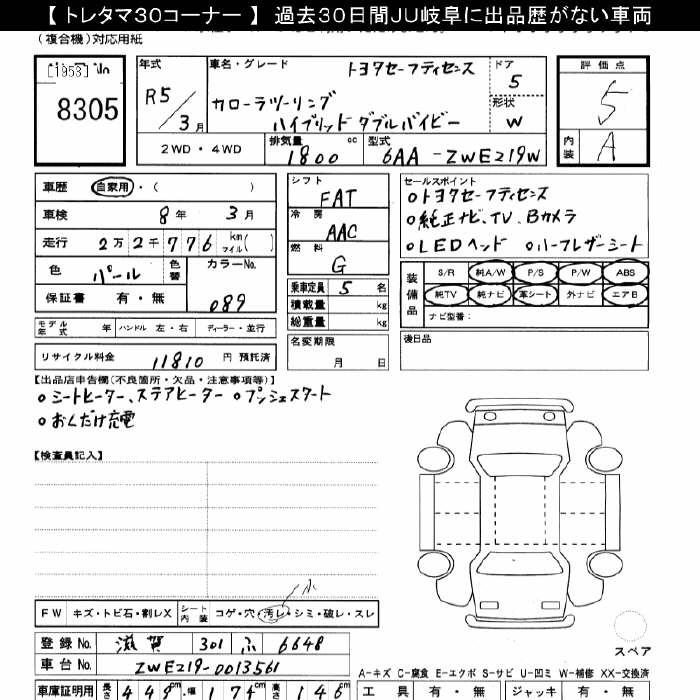 【 トレタマ30コーナー 】 過去30日間JU岐阜に出品歴がない車両
(複合機)対応用紙
[1953] No
8305
年式
R5/3月
車名・グレード
トヨタセーフティセンス
カローラツーリング
ハイブリッド ダブルバイビー
ドア
5
形状
W
評価点
5
内装
A
2WD ・ 4WD
排気量
1800 cc
型式
6AA-ZWE219W
車歴 自家用・( )
車検 8年 3月
走行 2万2千776 kmマイル( )
色 パール 色替
カラーNo. 089
保証書 有・無
モデル年式 年 ハンドル 左・右 ディーラー・並行
リサイクル料金 11810 円 預託済
シフト
FAT
冷房
AAC
燃料
G
乗車定員 5 名
積載量 kg
総重量 kg
名変期限
月 日
セールスポイント
○トヨタセーフティセンス
○純正ナビ、TV、Bカメラ
○LEDヘッド ○ハーフレザーシート
装備品
S/R 純A/W P/S P/W ABS
純TV 純ナビ 革シート 外ナビ エアB
ナビ型番:
後日品
【出品店申告欄(不良箇所・欠品・注意事項等)】
○シートヒーター、ステアヒーター ○プッシュスタート
○おくだけ充電
【検査員記入】
小
FW キズ・トビ石・割レX シート内装 コゲ・穴・汚レ・シミ・破レ・スレ
登録No. 滋賀 301 ふ 6648
車台No. ZWE219-0013561
車庫証明用 長さ 449cm 幅 174cm 高さ 146
スペア
A-キズ C-腐食 E-エクボ S-サビ U-凹ミ W-補修 XX-交換済
工具 有・無 ジャッキ 有・無